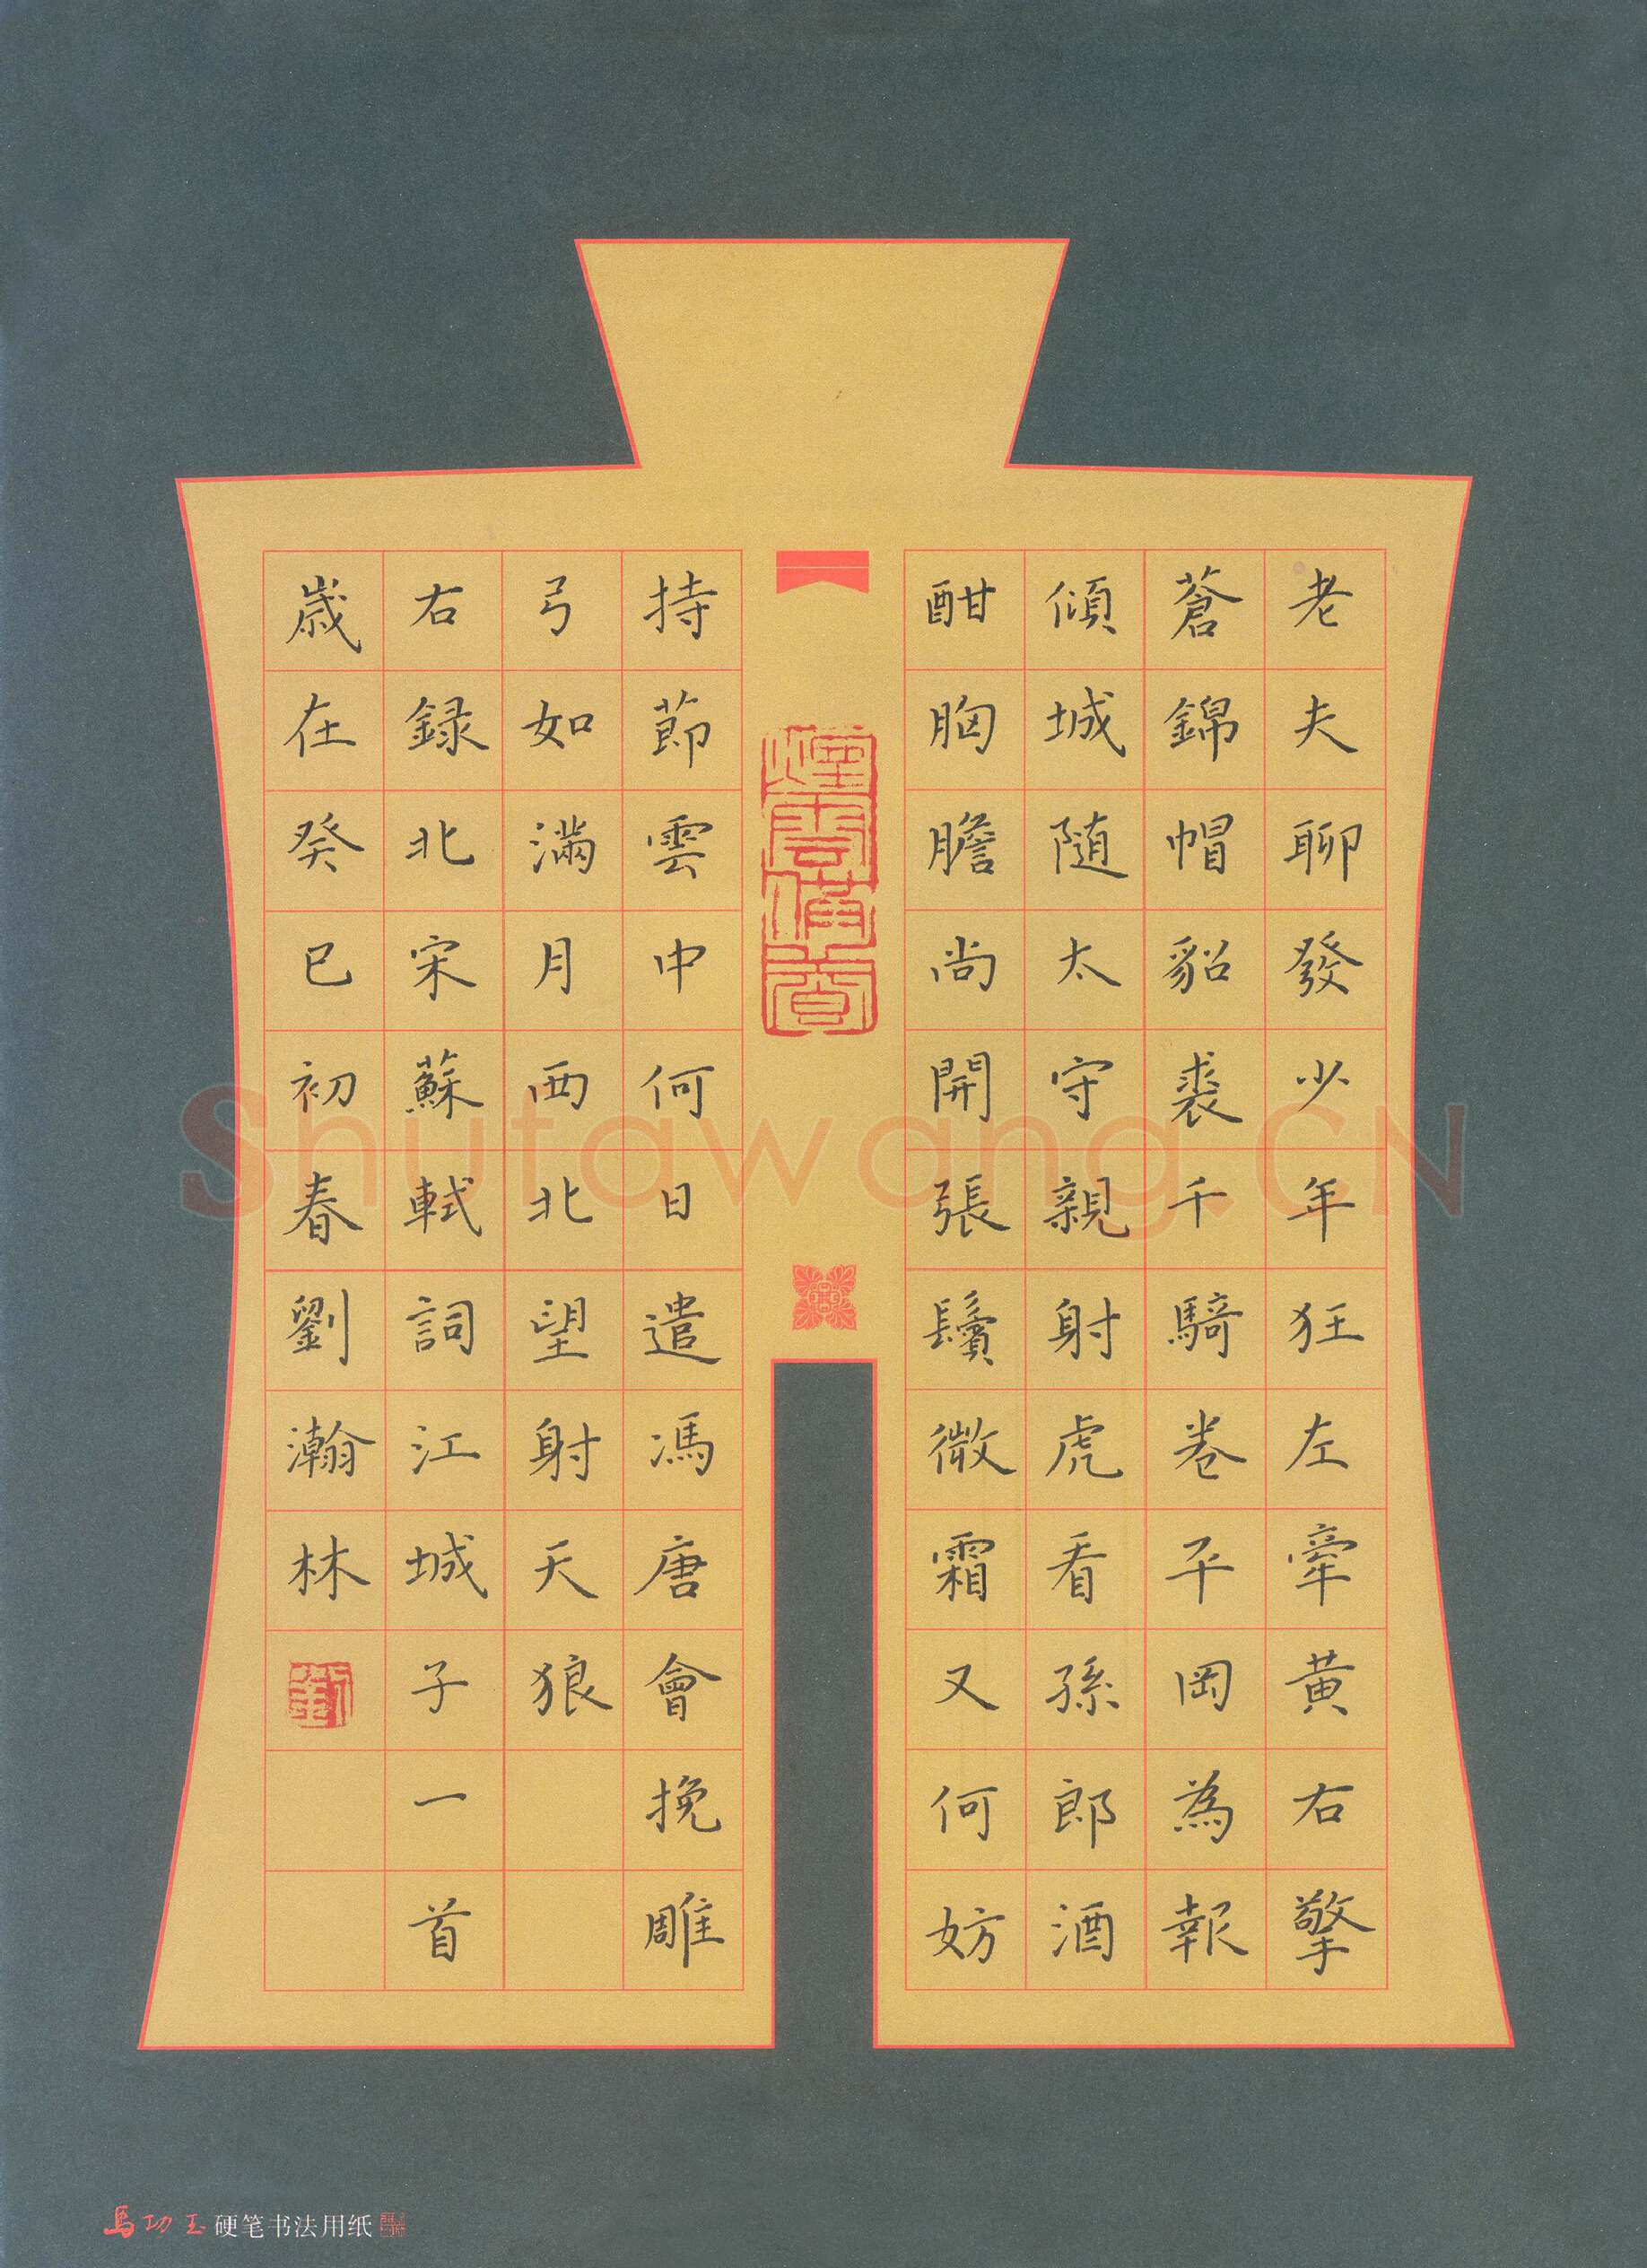 老夫聊發少年狂左牽黃右擎
蒼錦帽貂裘千騎卷平岡為報
傾城随太守親射虎看孫郎酒
酣胸膽尚開張鬢微霜又何妨
持節雲中何日遣馮唐會挽雕
弓如滿月西北望射天狼
右録北宋蘇軾詞江城子一首
歲在癸巳初春劉瀚林
Shufawang.CN
馬功玉硬笔书法用纸